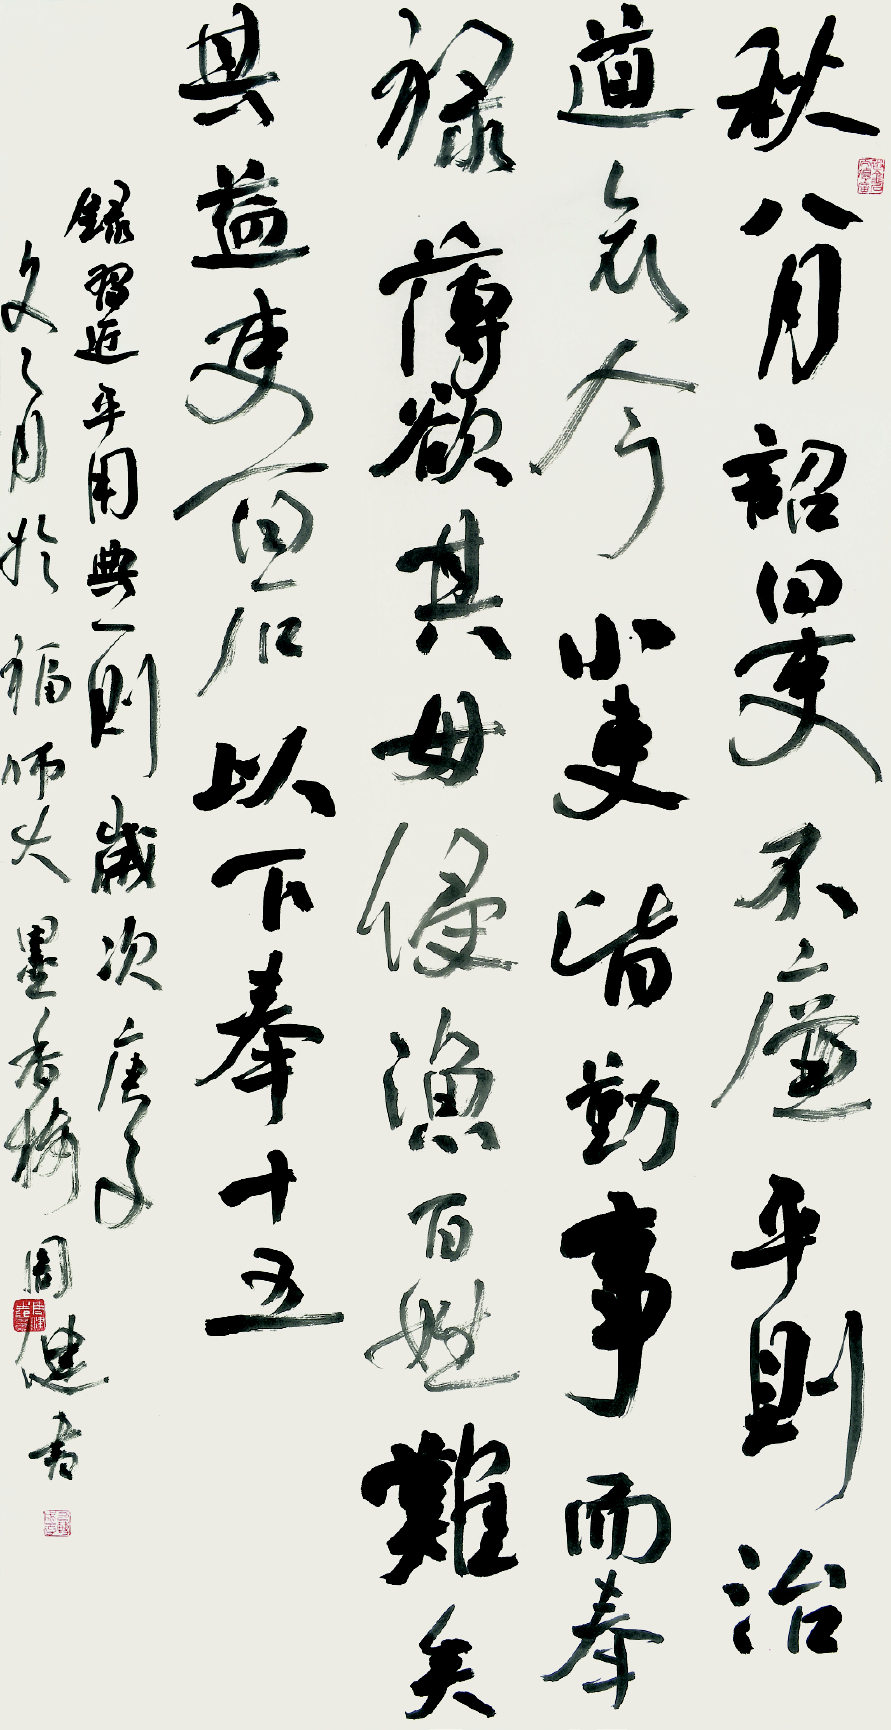 秋八月詔曰吏不廉平則治
道衰今小吏皆勤事而奉
祿薄欲其毋侵漁百姓難矣
其益吏百石以下奉十五
錄習近平用典一則歲次庚子
之月於福師大墨香周健書